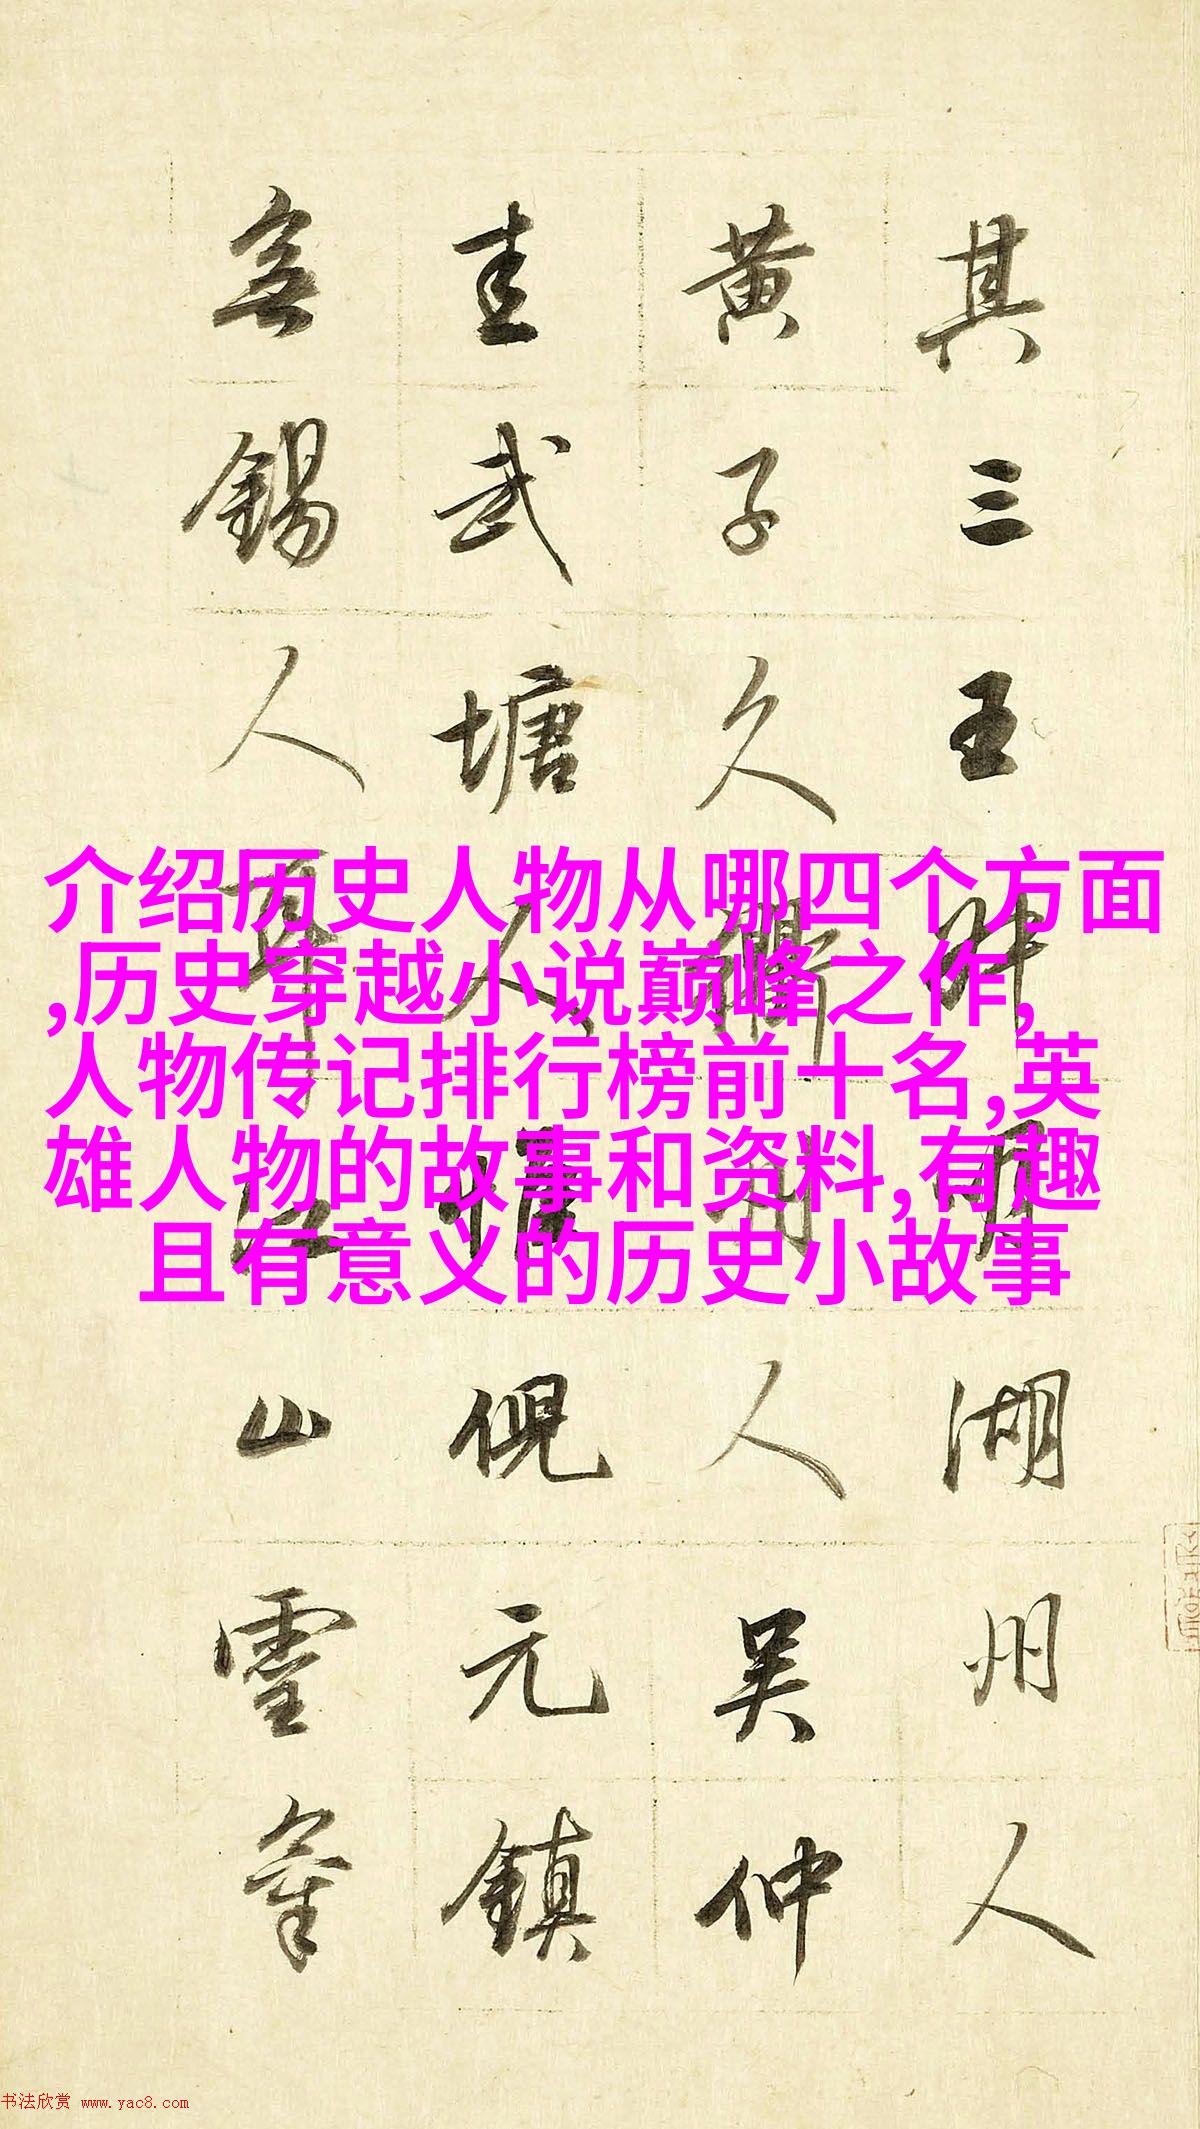 其三王叔明湖州人
黄子久衢州人吴仲
圭武塘人惟倪元鎮
無錫人耳江山靈氣
介绍历史人物从哪四个方面
,历史穿越小说巅峰之作,
人物传记排行榜前十名,英
雄人物的故事和资料,有趣
且有意义的历史小故事
书法欣赏 www.yac8.com